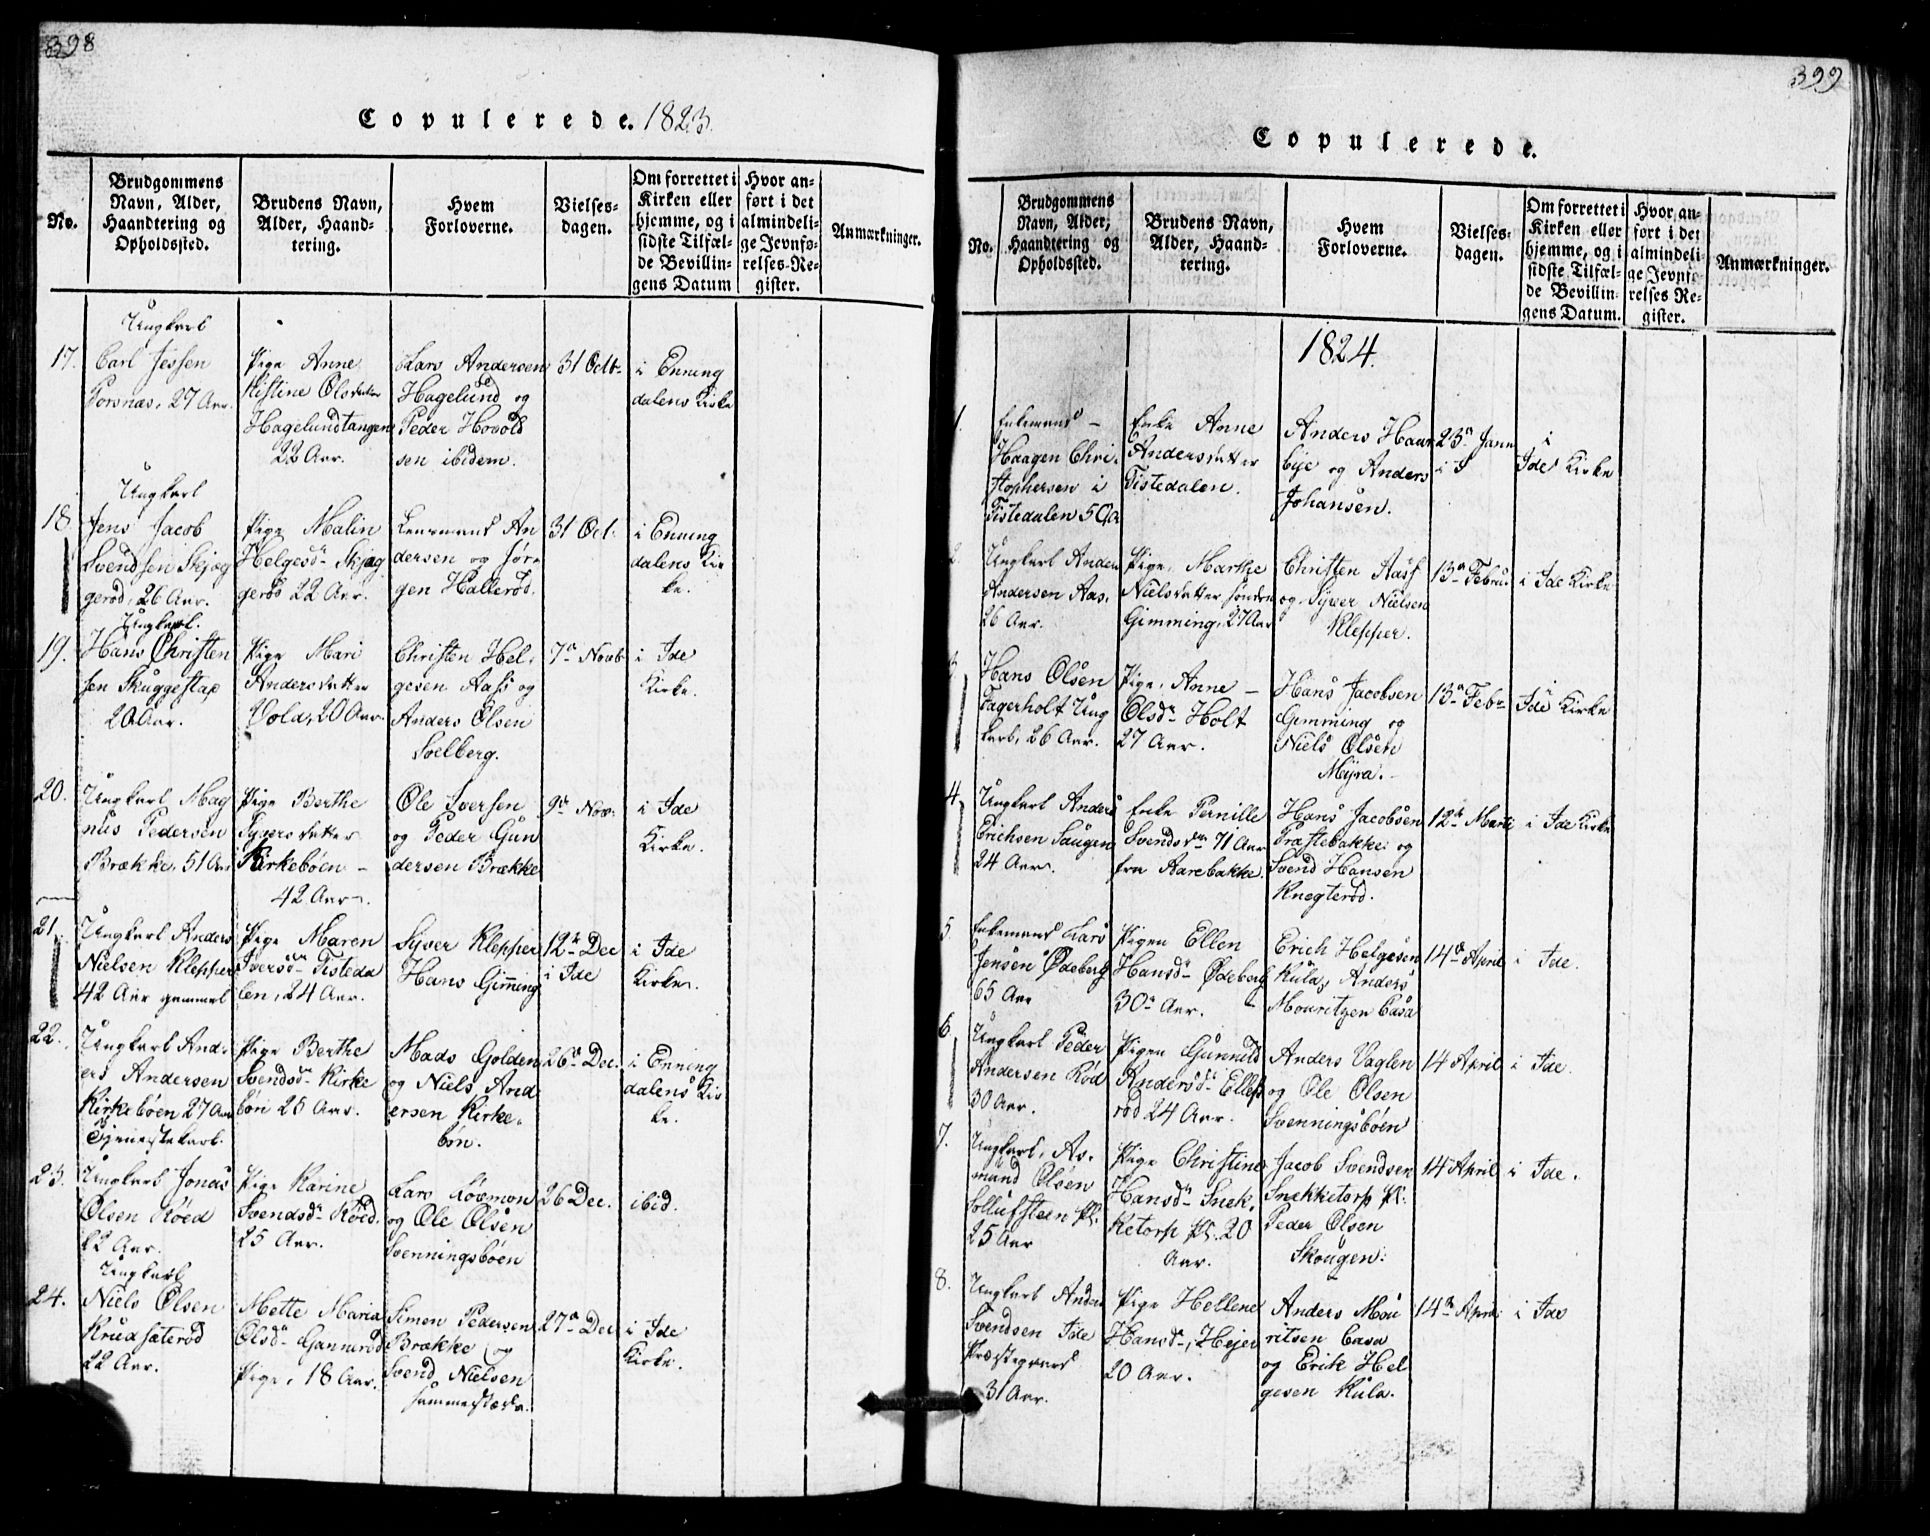 398
Copulerede. 1823.
No.
Brudgommens
Navn, Alder,
Haandtering og
Opholdssted.
Brudens Navn,
Alder, Haand-
tering.
Hvem
Forloverne.
Vielses-
dagen.
Om forrettet i
Kirken eller
hjemme, og i
sidste Tilfæl-
de Bevillin-
gens Datum
Hvor an-
ført i det
almindeli-
ge Jevnfø-
relses-Re-
gister.
Anmærkninger.
17.
Ungkarl
Carl Jessen
Torsnæs, 27 Aar.
Pige Anne
Kistine Olsdatter
Hagelundtangen
22 Aar.
Lars Andersen
Hagelund og
Peder Hovold
sen ibidem.
31 Octb.
i Enning
dalens Kirke
18
Ungkarl
Jens Jacob
Svendsen Skjeg
gerød, 26 Aar.
Pige Malin
Helgesdr Skjeg
gerød 22 Aar.
Lensmand An
dersen og Jør-
gen Hallerød.
31 Oct.
i Enning
dalens Kir
ke.
19.
Ungkarl.
Hans Christen
sen Skuggestap
20 Aar.
Pige Mari
Andersdatter
Vold, 20 Aar.
Christen Hel-
gesen Aass og
Anders Olsen
Solberg.
7de Novb
i Ide
Kirke.
20.
Ungkarl Mag
nus Pedersen
Brække, 51 Aar
Pige Berthe
Syversdatter
Kirkebøen -
42 Aar.
Ole Iversen
og Peder Gun
dersen Brække
9de Nov.
i Ide
Kirke.
21.
Ungkarl Anders
Nielsen Klepper
42 Aar gammel
Pige Maren
Iversdr Tisteda
len, 24 Aar.
Syver Klepper
Hans Gimming
12te Dec
i Ide
i Ide
Kirke.
22.
Ungkarl And-
ers Andersen
Kirkebøen 27 Aar
Tjenestekarl.
Pige Berthe
Svendsdr Kirke
bøn 25 Aar.
Mads Golden
og Niels And
ersen Kirke-
bøn.
26de Dec.
i Enning
dalens Kir
ke.
23.
Ungkarl Jonas
Olsen Røed
22 Aar.
Pige Karine
Svendsdr Røed.
25 Aar.
Lars
og Ole Olsen
Svenningsbøen
26 Dec.
ibid.
24.
Ungkarl
Niels Olsen
Krudsæterød
22 Aar.
Mette Maria
Olsdr Gannerød
Pige, 18 Aar.
Simen Pedersen
Brække og
Svend Nielsen
sammesteds.
27de Dec
i Ide
Kirke.
399
Copulerede.
No.
Brudgommens
Navn, Alder,
Haandtering og
Opholdssted.
Brudens Navn,
Alder, Haand-
tering.
Hvem
Forloverne.
Vielses-
dagen.
Om forrettet i
Kirken eller
hjemme, og i
sidste Tilfæl-
de Bevillin-
gens Datum.
Hvor an-
ført i det
almindeli-
ge Jevnfø-
relses Re-
gister.
Anmærkninger.
1824.
1.
Enkemand -
Haagen Chri-
stophersen i
Tistedalen 50 Aar
Enke Anne
Andersdatter
Tistedalen.
Anders Haur
bye og Anders
Johansen.
23de Jann
i
Ide Kirke
2.
Ungkarl Anders
Andersen Aas.
26 Aar.
Pige, Marthe
Nielsdatter søndre
Gimming, 27 Aar
Christen Aass
og Syver Nielsen
Klepper.
13de Febru.
i Ide Kirke
3.
Hans Olsen
Fagerholt Ung
karl, 26 Aar.
Pige, Anne -
Olsdr Holt
27 Aar.
Hans Jacobsen
Gimming og
Niels Olsen
Myra.
13de Febr
i
Ide Kirke
4.
Ungkarl Anders
Erichsen Saugen
24 Aar.
Enke Pernille
Svendsdr 71 Aar
fra Aarebakke.
Hans Jacobsen
Præstebakke og
Svend Hansen
Knegterød.
12te Marti
i Ide Kirke
5.
Enkemand Lars
Jensen Ødeberg
65 Aar
Pigen Ellen
Hansdr Ødeberg
30 Aar.
Erich Helgesen
Kula, Anders
Mouritzen Casa
14de April
i Ide.
6
Ungkarl Peder
Andersen Rød
30 Aar.
Pigen Gunnild
Andersdr Ellefs
rød 24 Aar.
Anders Vaglen
og Ole Olsen
Svenningsbøen
14 April
i Ide.
7.
Ungkarl, As-
mund Olsen
Solluftsteen Pl.
25 Aar
Pige Christine
Hansdr Snek-
ketorp Pl. 20
Aar.
Jacob Svendsen
Snekketorp Pl.
Peder Olsen
Skougen.
14 April
i Ide.
8.
Ungkarl Anders
Svendsen Ide
Præstegaard
31 Aar.
Pige Hellene
Hansdr, Hejer
20 Aar.
Anders Mou
ritsen Casa
og Erik Hel
gesen Kula.
14de April
i Ide